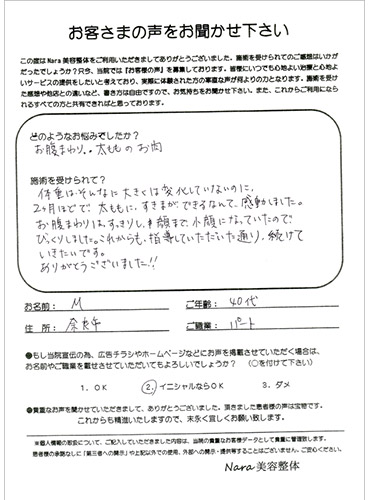 お客さまの声をお聞かせ下さい
この度は Nara 美容整体をご利用いただきましてありがとうございました。施術を受けられてのご感想はいかが
だったでしょうか？只今、当院では『お客様の声』を募集しております。皆様にいつでも心地よい治療と心地よ
いサービスの提供をしたいと考えており、実際に体験された方の率直な声が何よりの力となります。施術を受け
た感想や他店との違いなど、書き方は自由ですので、お気持ちをお聞かせ下さい。また、これからご利用にな
られるすべての方と共有できればと思っております。
どのようなお悩みでしたか？
お腹まわり、、太もものお肉
施術を受けられて？
体重は、そんなに大きくは変化していないのに、
2ヶ月ほどで、太ももに、すきまができるなんて、感動しました。
お腹まわりは、すっきりし、顔まで、小顔になっていたので
びっくりしました。これからも、指導していただいた通り、続けて
いきたいです。
ありがとうございました!!
お名前： M ご年齢： 40代
住 所： 奈良市 ご職業： パート
●もし当院宣伝の為、広告チラシやホームページなどにお声を掲載させていただく場合は、
お名前やご職業を載せさせていただいてもよろしいでしょうか？（○を付けて下さい）
1．OK 2．イニシャルならOK 3．ダメ
●貴重なお声を聞かせていただきまして、ありがとうございました。頂きました患者様の声は宝物です。
これからも精進いたしますので、末永く宜しくお願い致します。
※個人情報の取扱について、ご記入していただきました内容は、当院の貴重なお客様データとして貴重に管理致します。
患者様の承諾なしに「第三者への開示」や上記以外での使用、外部への開示・提供等することはございません。ご安心ください。
Nara 美容整体